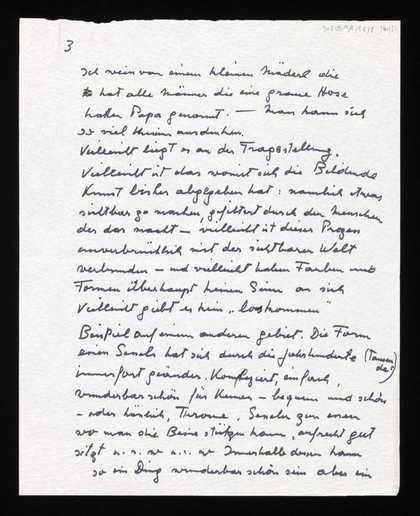 3
Ich weiss von einem kleinen Mäderl die
hat alle Männer die eine graue Hose
hatten Papa genannt. — Man kann sich
so viel ausdenken.
Vielleicht liegt es an der Fragestellung.
Vielleicht ist das womit sich die Bildende
Kunst bisher abgegeben hat: nämlich etwas
sichtbar zu machen, gefiltert durch den Menschen
der das macht — vielleicht ist dieser Prozess
unverbrüchlich mit der sichtbaren Welt
verbunden — und vielleicht haben Farben und
Formen überhaupt keinen Sinn an sich
Vielleicht gibt es kein „loskommen"
Beispiel auf einem anderen Gebiet. Die Form
eines Sessels hat sich durch die Jahrhunderte (Tausen
de)
immerfort geändert. Kompliziert, einfach,
wunderbar schön für Kenner — bequem und schön
— oder hässlich, Throne, Sessel zum essen
wo man die Beine stützen kann, aufrecht gut
sitzt u. s. w u. s. w Innerhalb dessen kann
so ein Ding wunderbar schön sein aber ein